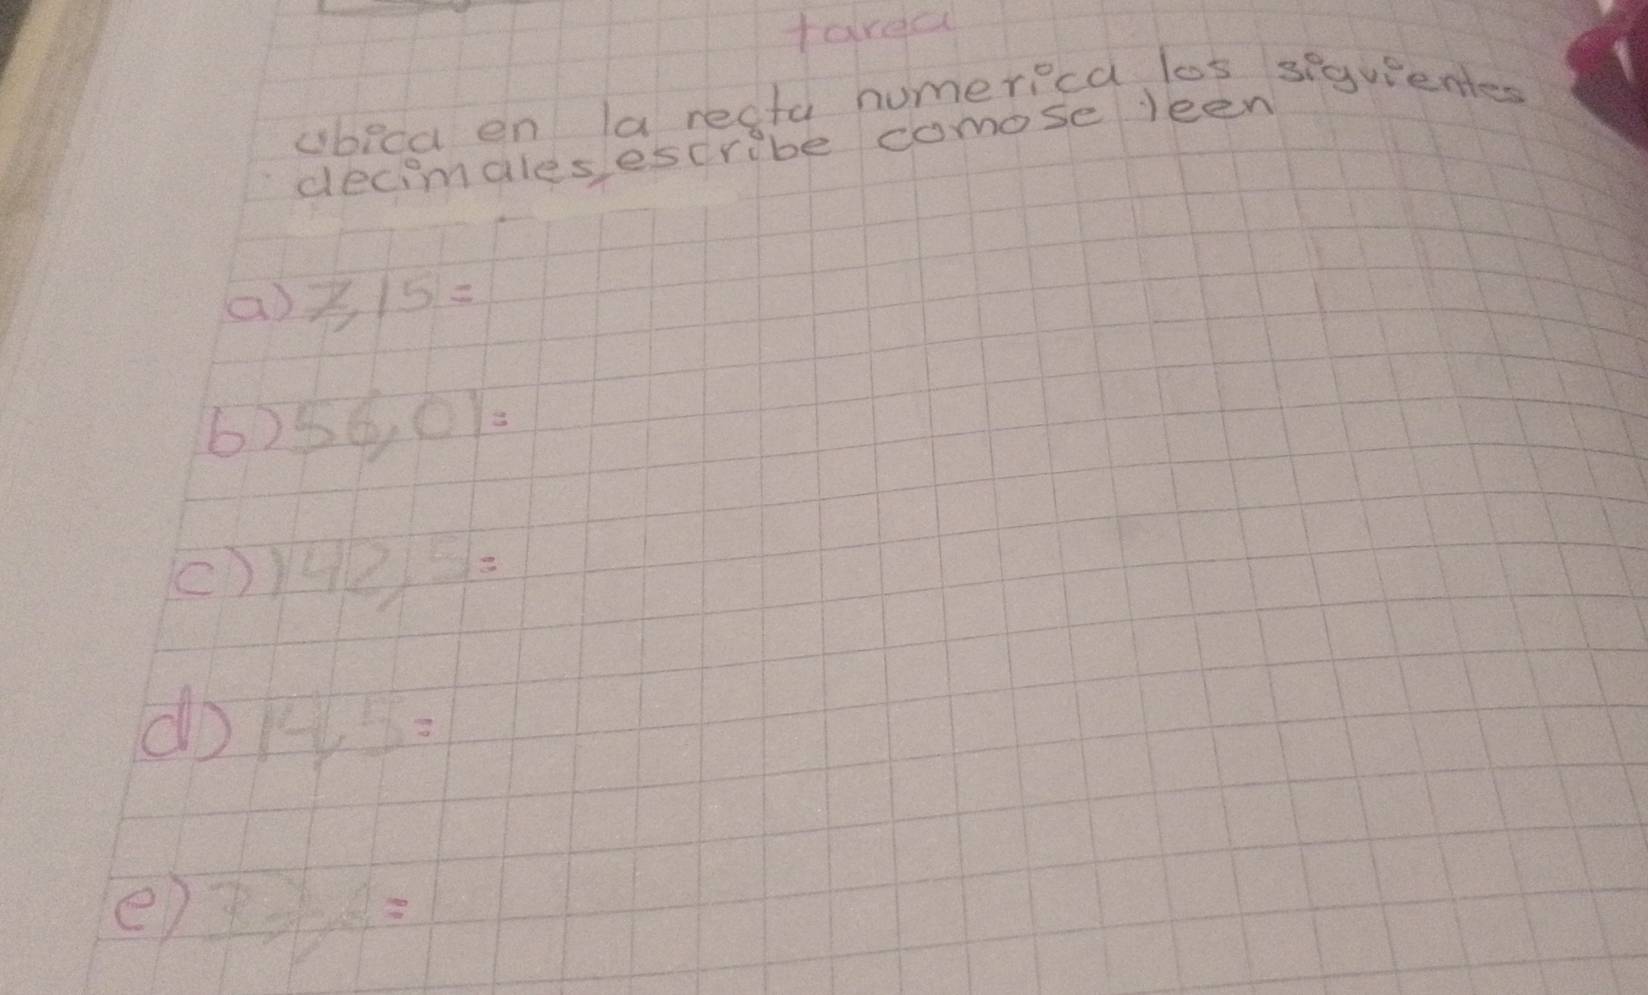 tarea
ubica en la recta numerica los siguientes
decimales, escribe comose leen
a) 7,15 =
b) 56,01 =
c) 142,5 =
d) 14,5 =
e) =